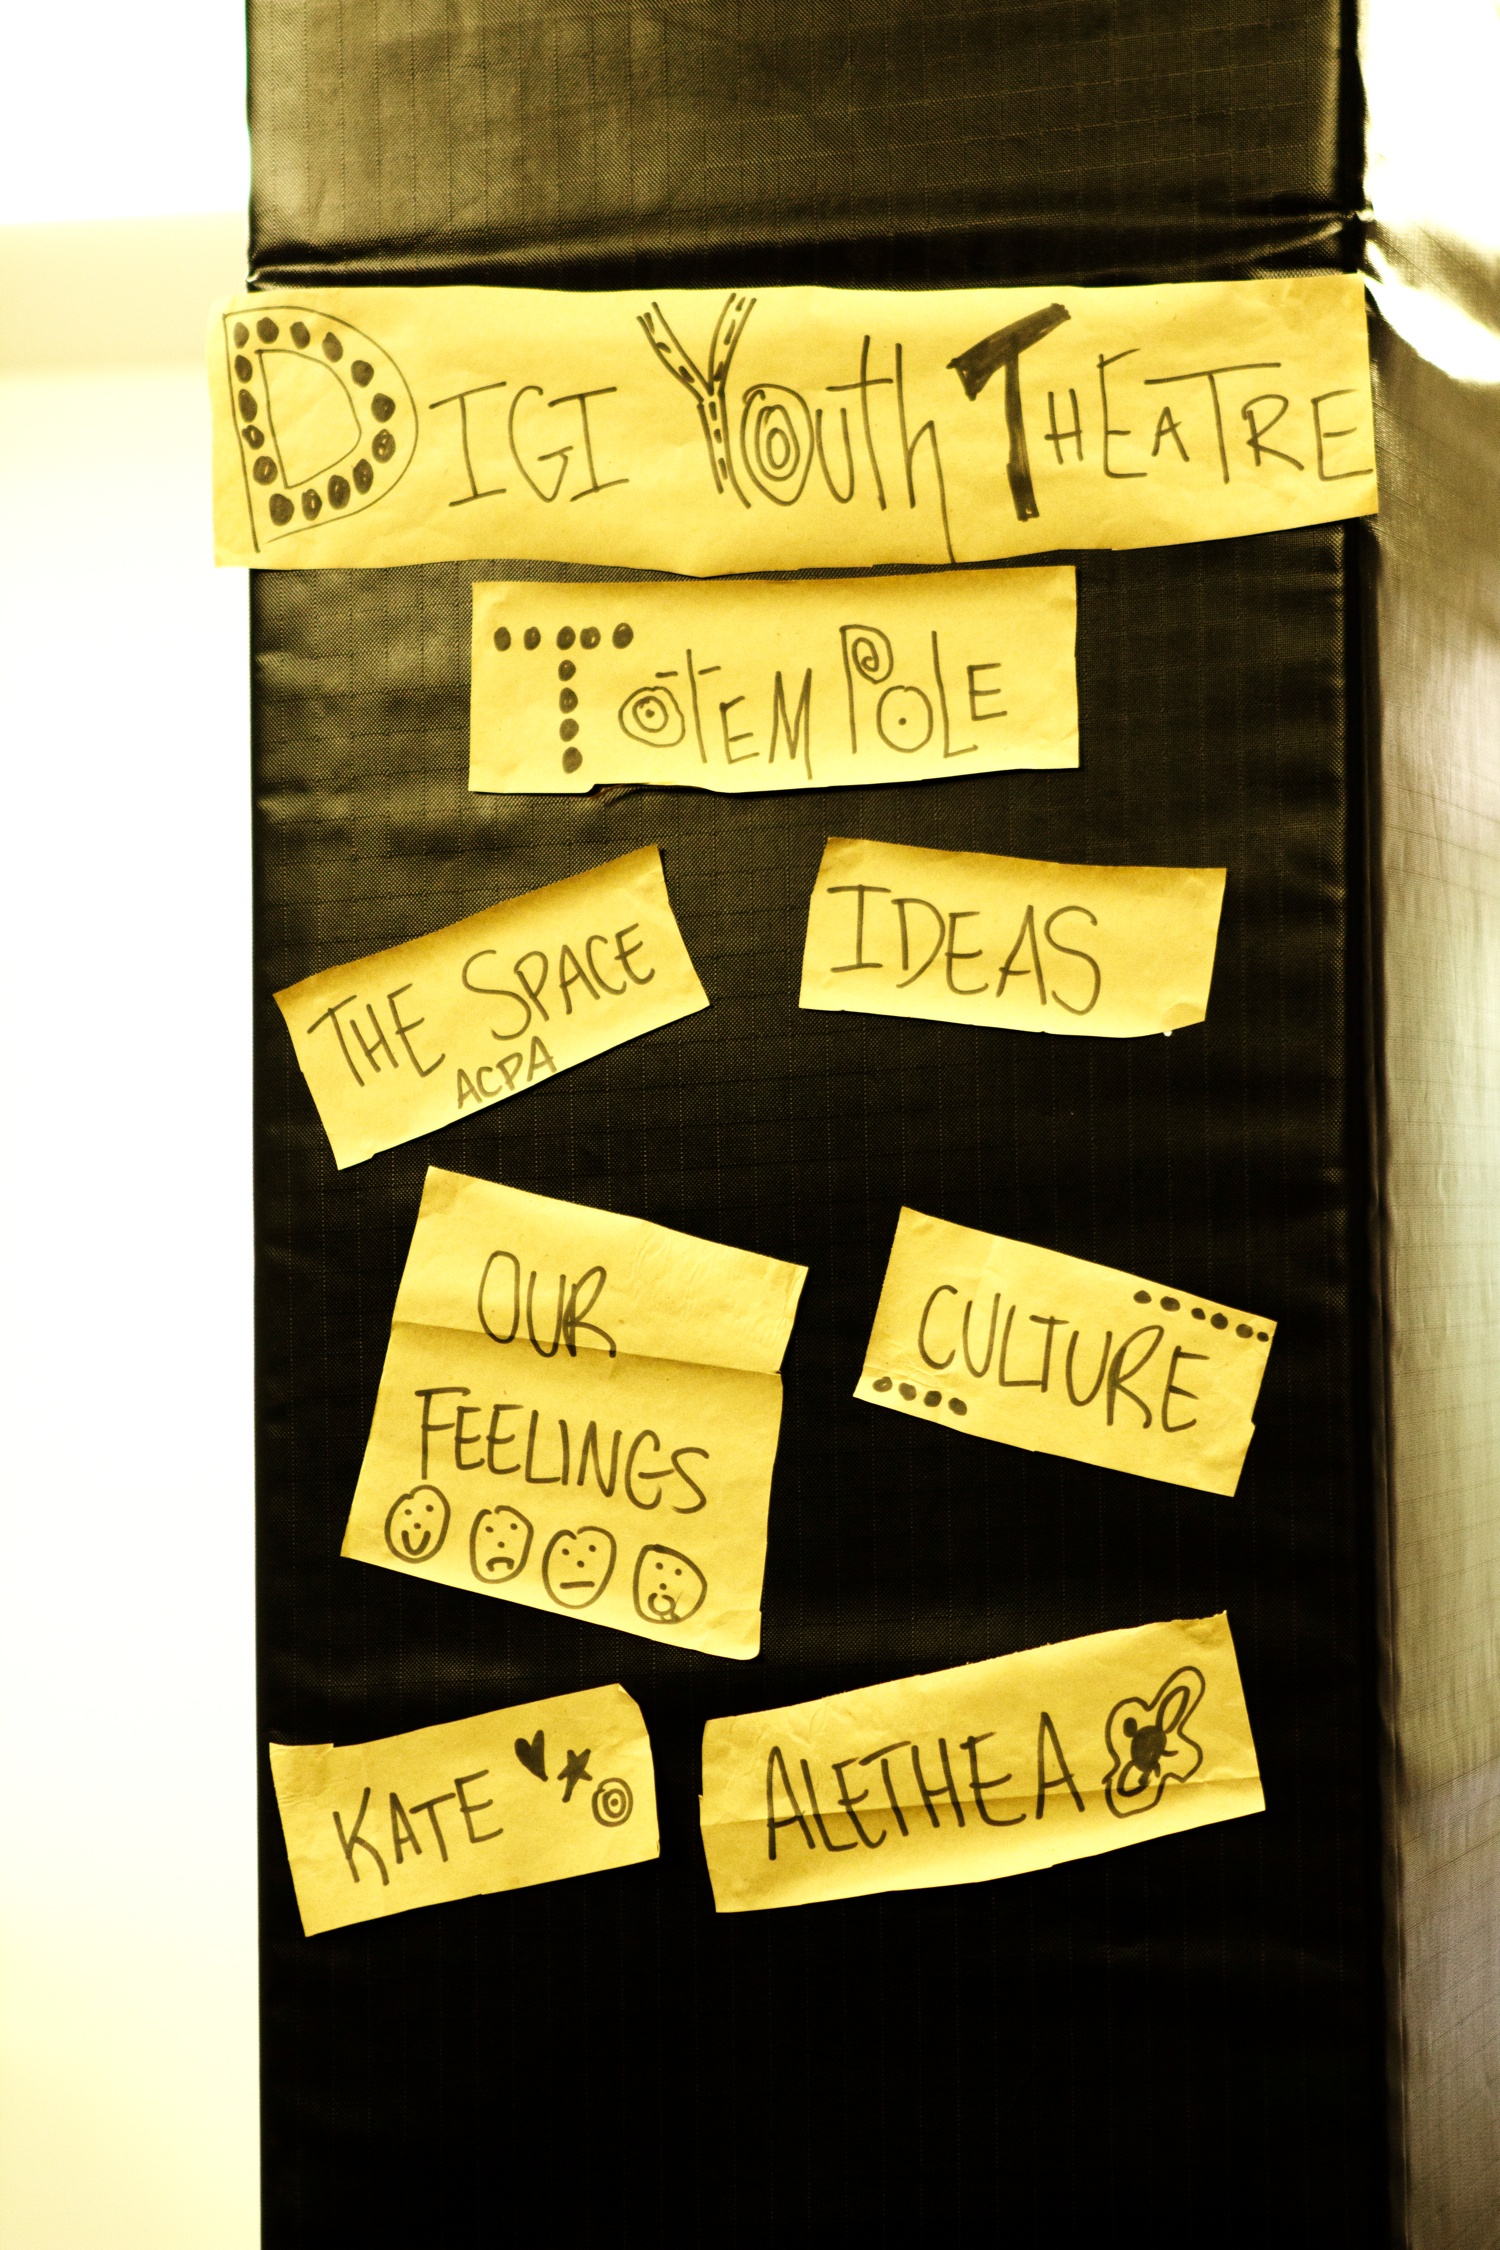 DIGI YOUTH THEATRE
TOTEM POLE
THE SPACE
ACPA
IDEAS
OUR
FEELINGS
CULTURE
KATE
ALETHEA